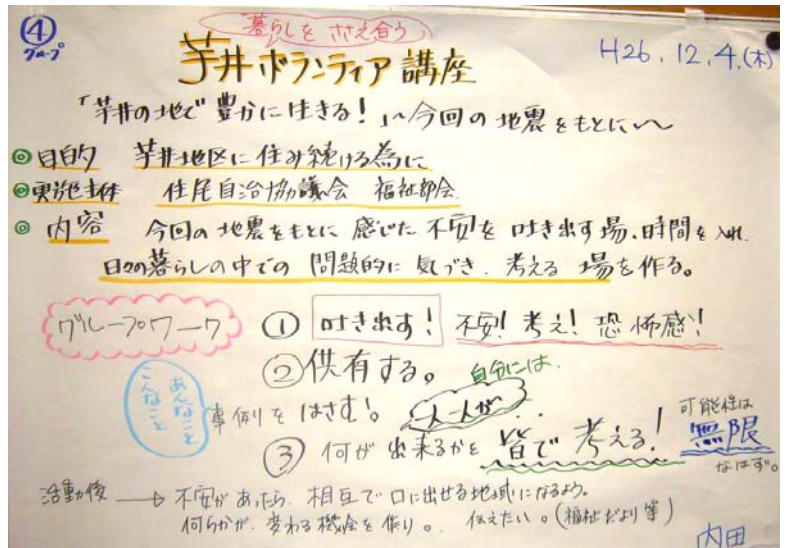 ④
グループ
暮らしを ささえ合う
芋井ボランティア講座
H26.12.4.(木)
「芋井の地で豊かに生きる!」~今回の地震をもとに~
◎目的 芋井地区に住み続ける為に
◎実施主体 住民自治協議会 福祉部会
◎内容 今回の地震をもとに 感じた 不安を 吐き出す場、時間を入れ
日々の暮らしの中での 問題的に 気づき、考える 場を作る。
グループワーク
① 吐き出す! 不安! 考え! 恐怖感!
②供有する。
あんなこと
こんなこと
事例りを はさむ!。
自分には
一人一人が・・
③ 何が 出来るかを 皆で 考える!
可能性は
無限
なはず。
活動後 → 不安が あったら、相互で 口に出せる地域になるよう。
何らかが、変わる機会を作り。 伝えたい。(福祉だより等)
内田